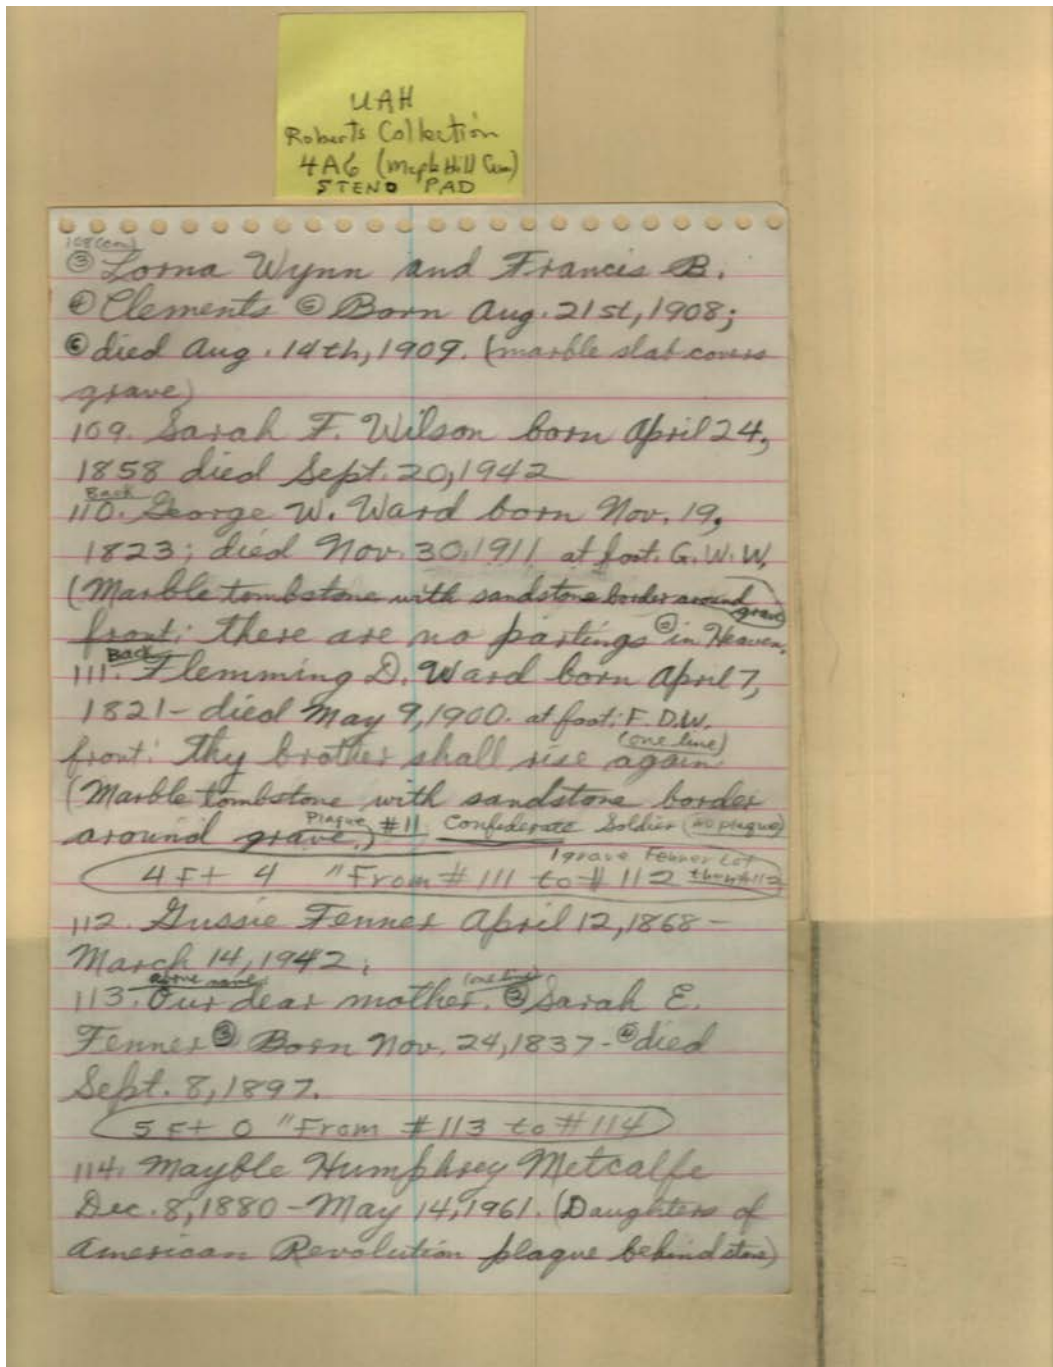 UAH
Roberts Collection
4A6 (Maple Hill Cem)
STENO PAD
108 (con)
③ Lorna Wynn and Francis B.
④ Clements ⑤ Born Aug. 21st, 1908;
⑥ died Aug. 14th, 1909. (marble slab covers
grave)
109. Sarah F. Wilson born April 24,
1858 died Sept. 20, 1942
Back
110. George W. Ward born Nov. 19,
1823; died Nov. 30, 1911 at foot: G. W. W.
(Marble tombstone with sandstone border around
grave)
front: there are no partings ② in Heaven.
Back
111. Flemming D. Ward born April 7,
1821 - died May 9, 1900. at foot: F. D. W.
(one line)
front: Thy brother shall rise again
(Marble tombstone with sandstone border
around grave.) Plaque #11 Confederate Soldier (no plaque)
1 grave Fenner Lot
4 Ft 4 " From #111 to #112 then #112
112. Gussie Fenner April 12, 1868 -
March 14, 1942.
above name (one line)
113. Our dear mother. ② Sarah E.
Fenner ③ Born Nov. 24, 1837 - ④ died
Sept. 8, 1897.
5 Ft 0 " From #113 to #114
114. Mayble Humphrey Metcalfe
Dec. 8, 1880 - May 14, 1961. (Daughters of
American Revolution plaque behind stone)